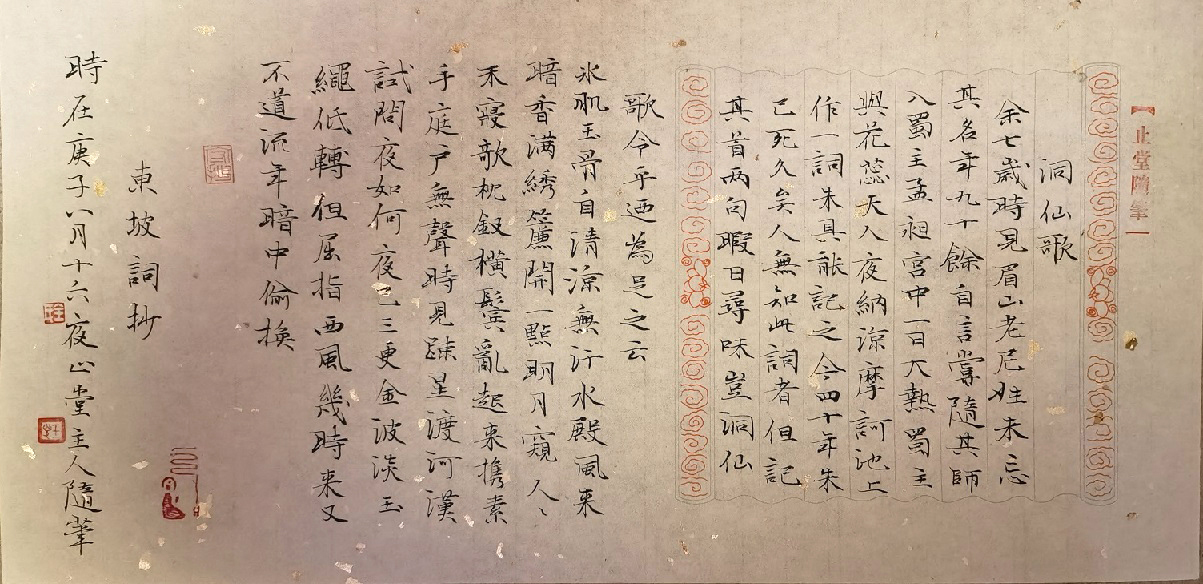 【止堂隨筆】
洞仙歌
余七歲時見眉山老尼姓朱忘
其名年九十餘自言嘗隨其師
入蜀主孟昶宮中一日大熱蜀主
與花蕊夫人夜納涼摩訶池上
作一詞朱具能記之今四十年朱
已死久矣人無知此詞者但記
其首两句暇日尋味豈洞仙
歌令乎迺為足之云
冰肌玉骨自清涼無汗水殿風来
暗香满綉簾開一點明月窺人人
未寢欹枕釵橫鬓亂起来携素
手庭户無聲時見疎星渡河漢
試問夜如何夜已三更金波淡玉
繩低轉但屈指西風幾時来又
不道流年暗中偷換
東坡詞抄
時在庚子八月十六夜止堂主人隨筆